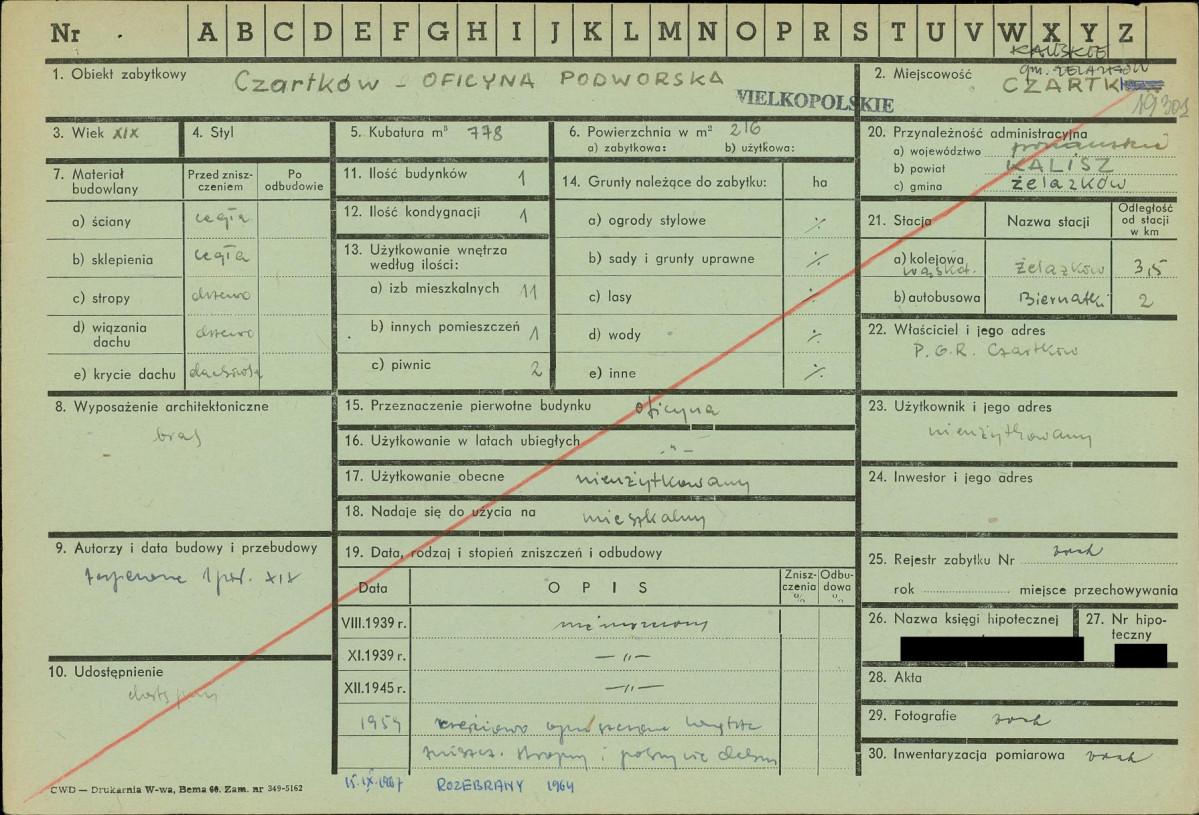 Nr A B C D E F G H I J K L M N O P R S T U V W X Y Z
KALISKIE
gm. ŻELAZKÓW
1. Obiekt zabytkowy Czartków – OFICYNA PODWORSKA
WIELKOPOLSKIE
2. Miejscowość CZARTK
19301
3. Wiek XIX
4. Styl
5. Kubatura m³ 778
6. Powierzchnia w m² 216
a) zabytkowa: b) użytkowa:
7. Materiał budowlany
Przed zniszczeniem
Po odbudowie
a) ściany cegła
b) sklepienia cegła
c) stropy drzewo
d) wiązania dachu drzewo
e) krycie dachu dachówka
8. Wyposażenie architektoniczne
brak
9. Autorzy i data budowy i przebudowy
1 poł. XIX
10. Udostępnienie
dostępny
11. Ilość budynków 1
12. Ilość kondygnacji 1
13. Użytkowanie wnętrza
według ilości:
a) izb mieszkalnych 11
b) innych pomieszczeń 1
c) piwnic 2
14. Grunty należące do zabytku: ha
a) ogrody stylowe ·/.
b) sady i grunty uprawne ·/.
c) lasy ·/.
d) wody ·/.
e) inne ·/.
15. Przeznaczenie pierwotne budynku oficyna
16. Użytkowanie w latach ubiegłych -"-
17. Użytkowanie obecne nieużytkowany
18. Nadaje się do użycia na mieszkalny
19. Data, rodzaj i stopień zniszczeń i odbudowy
Data OPIS Zniszczenia % Odbudowa %
VIII.1939 r. nie niszczony
XI.1939 r. —"—
XII.1945 r. —"—
1954 częściowo opuszczone wnętrze
zniszcz. stropy i pokrycie dachu
15.IX.1967 ROZEBRANY 1964
20. Przynależność administracyjna
a) województwo poznańskie
b) powiat KALISZ
c) gmina żelazków
21. Stacja Nazwa stacji Odległość od stacji w km
a) kolejowa wąskot. żelazków 3,5
b) autobusowa Biernatki 2
22. Właściciel i jego adres
P.G.R. Czartków
23. Użytkownik i jego adres
nieużytkowany
24. Inwestor i jego adres
25. Rejestr zabytku Nr brak
rok miejsce przechowywania
26. Nazwa księgi hipotecznej
27. Nr hipoteczny
28. Akta
29. Fotografie brak
30. Inwentaryzacja pomiarowa brak
CWD — Drukarnia W-wa, Bema 60. Zam. nr 349-5162